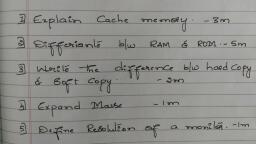 1] Explain Cache memory. - 3m
2] Differiante b/w RAM & ROM. - 5m
3] Write the difference b/w hard Copy
& Soft Copy. - 2m
4] Expand Mouse - 1m
5] Define Resolution of a moniter. - 1m